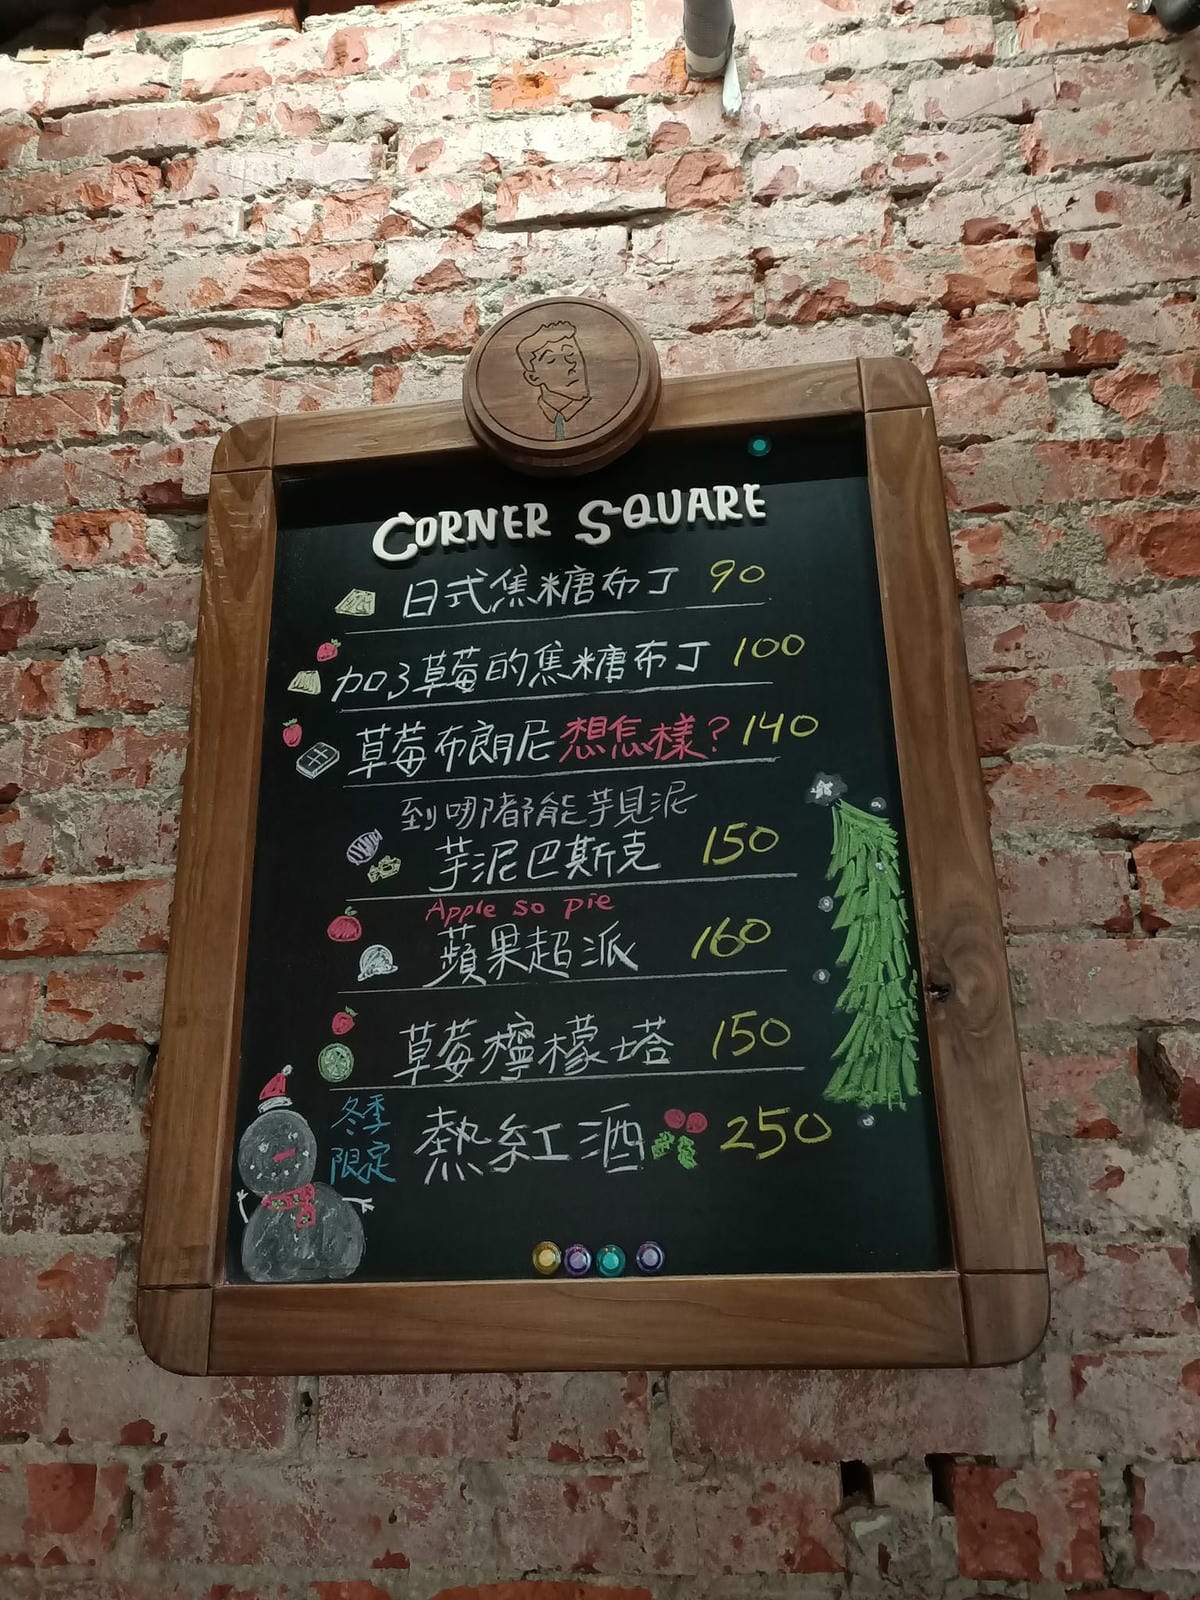 CORNER SQUARE
日式焦糖布丁 90
加了草莓的焦糖布丁 100
草莓布朗尼想怎樣？ 140
到哪都能芋見泥
芋泥巴斯克 150
Apple so pie
蘋果超派 160
草莓檸檬塔 150
冬季
限定
熱紅酒 250